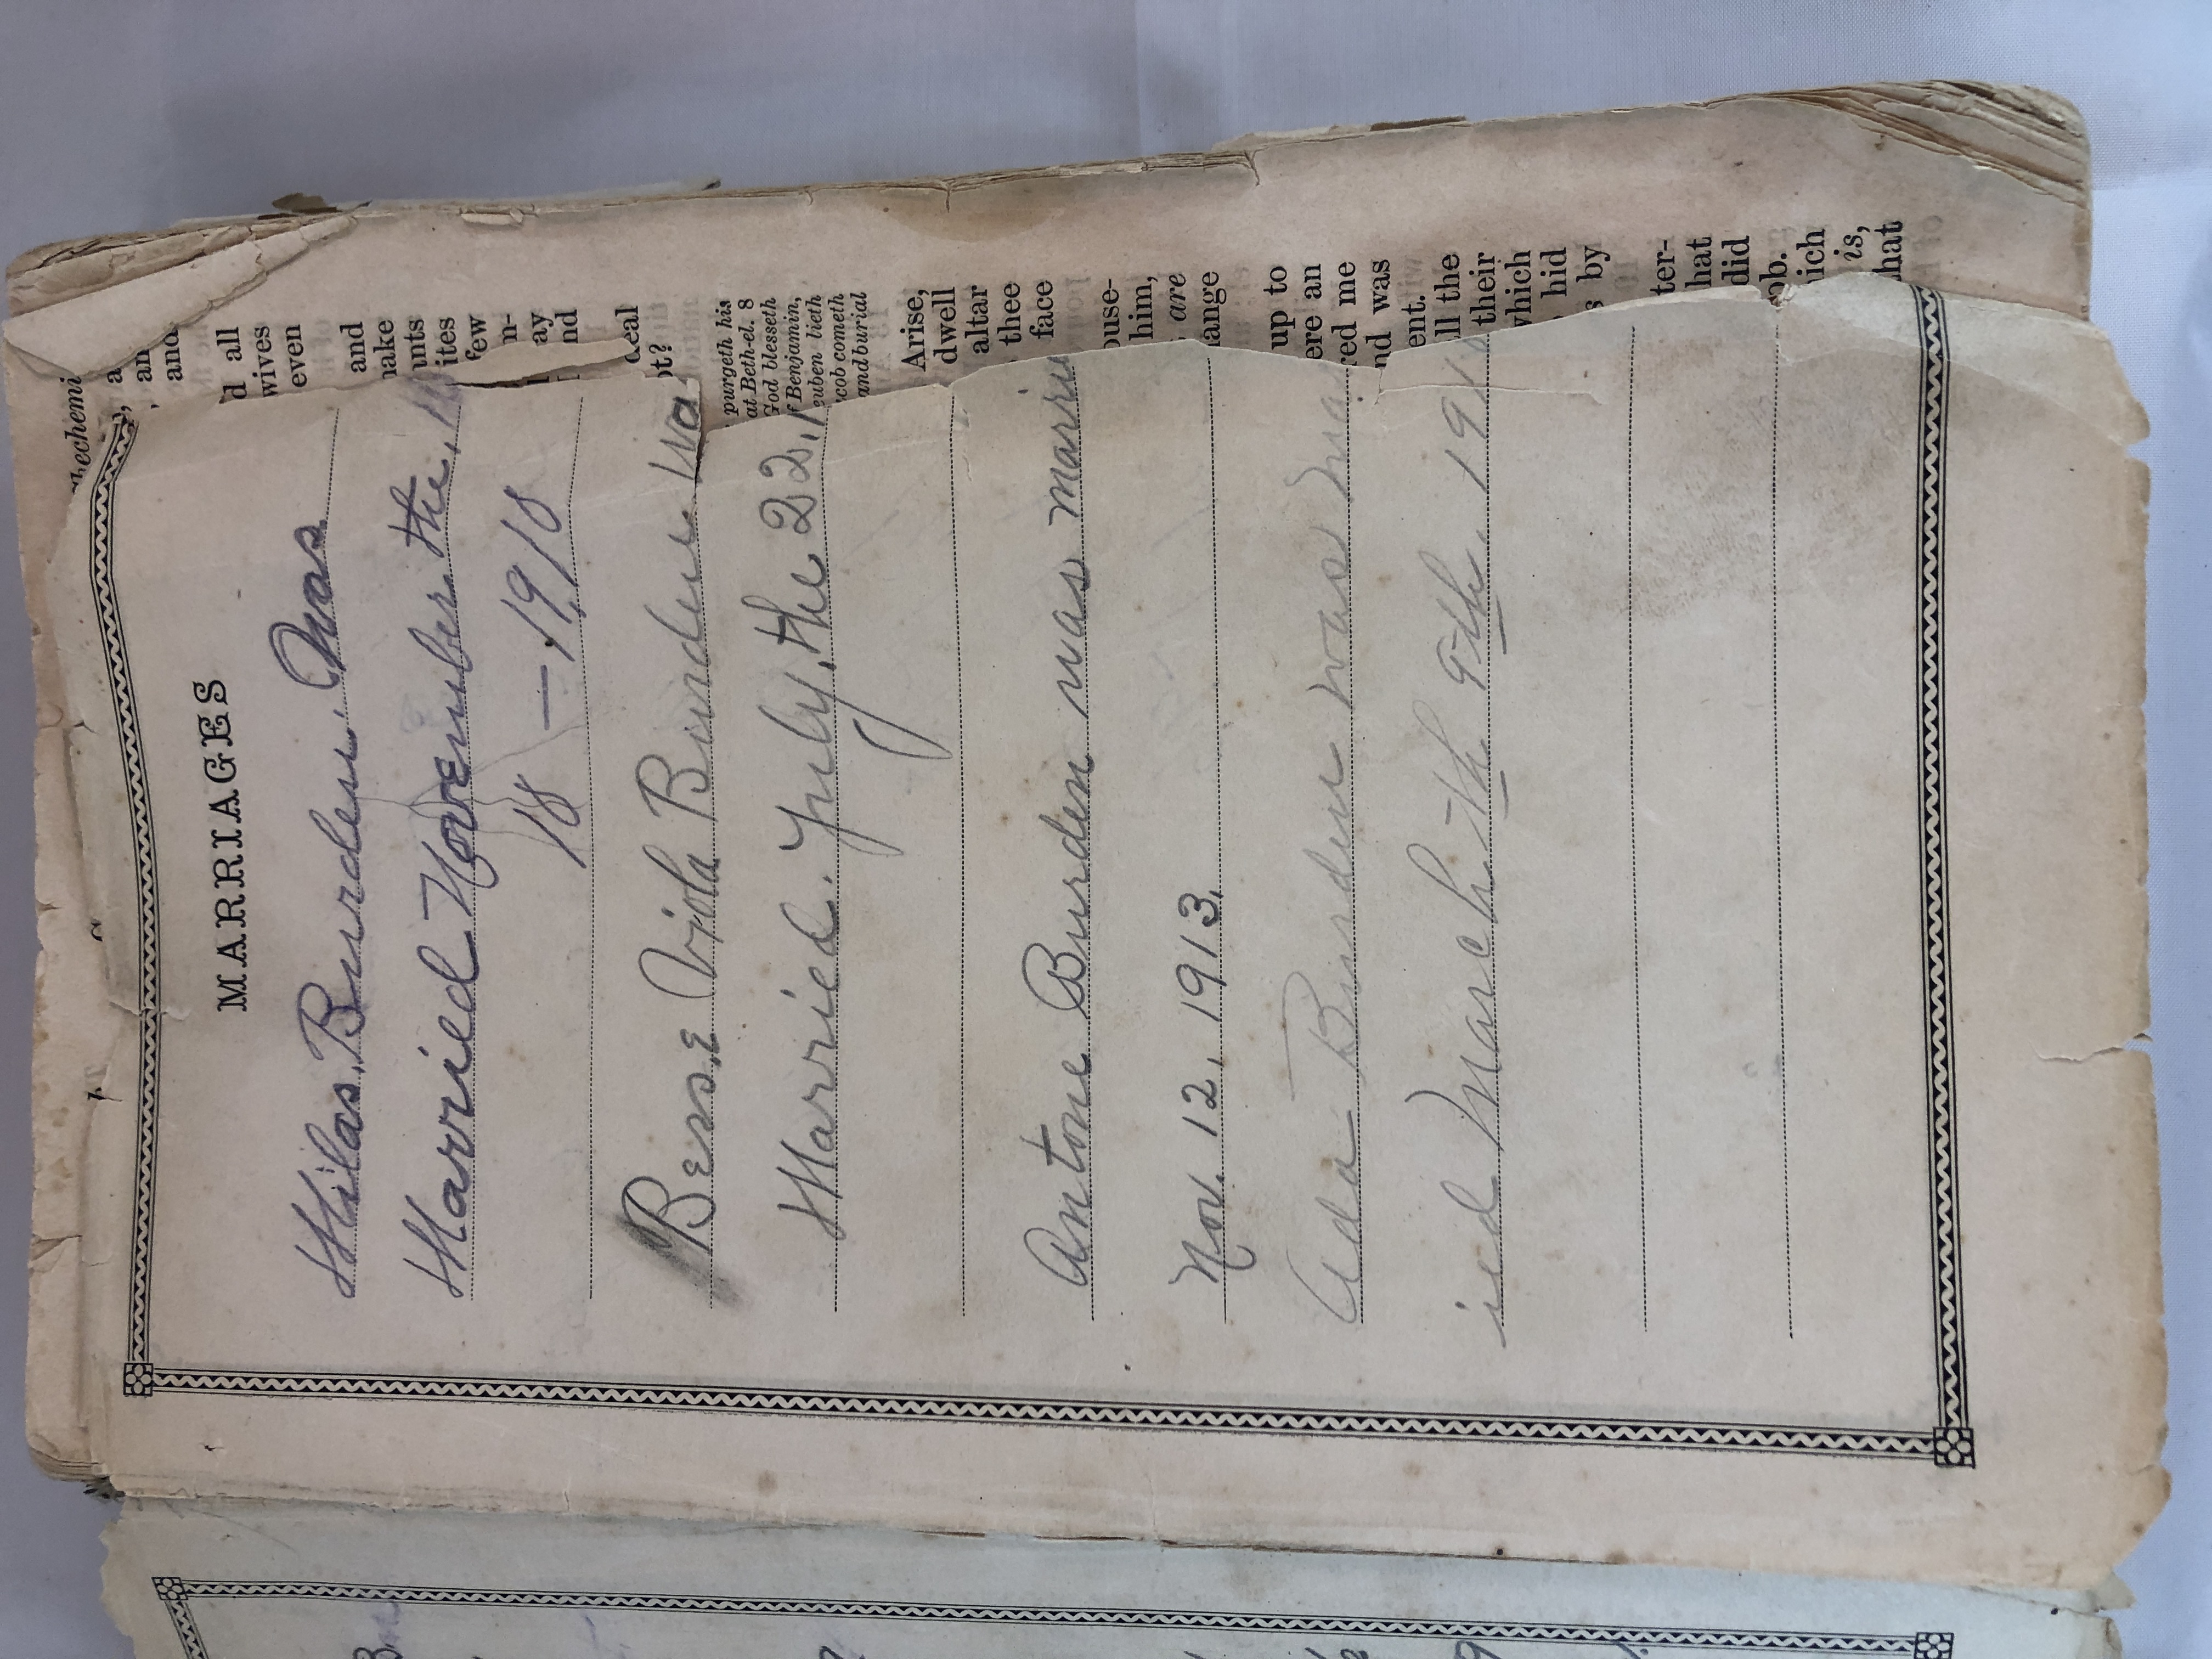 MARRIAGES
Milas. Burden. Was
Married November. the. 18
18 — 1918
Bessie Viola Burden. Wa
Married. July. the 22. 1
Antone Burden was marri
Nov. 12, 1913.
Ada Burden was mar
ied March. th 9th. 191
hechemi
a
an
and
d all
wives
even
and
nake
unts
ites
few
n-
ay
nd
deal
ot?
purgeth his
at Beth-el. 8
God blesseth
f Benjamin,
euben lieth
cob cometh
and burial
Arise,
dwell
altar
thee
face
ouse-
him,
are
ange
up to
ere an
red me
nd was
ent.
ll the
their
which
hid
s by
ter-
hat
did
ob.
ich
is,
hat